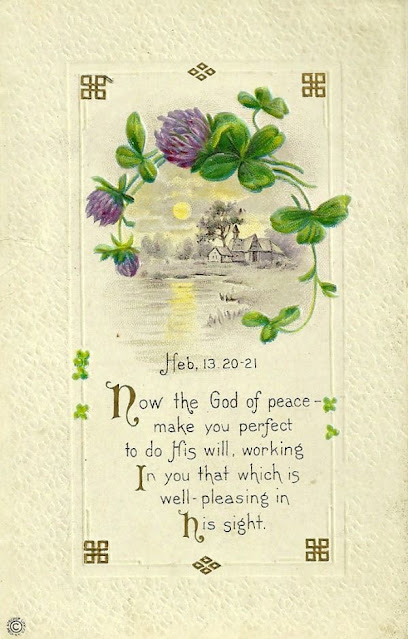 Heb, 13. 20-21
Now the God of peace-
make you perfect
to do His will, working
In you that which is
well-pleasing in
his sight.
©